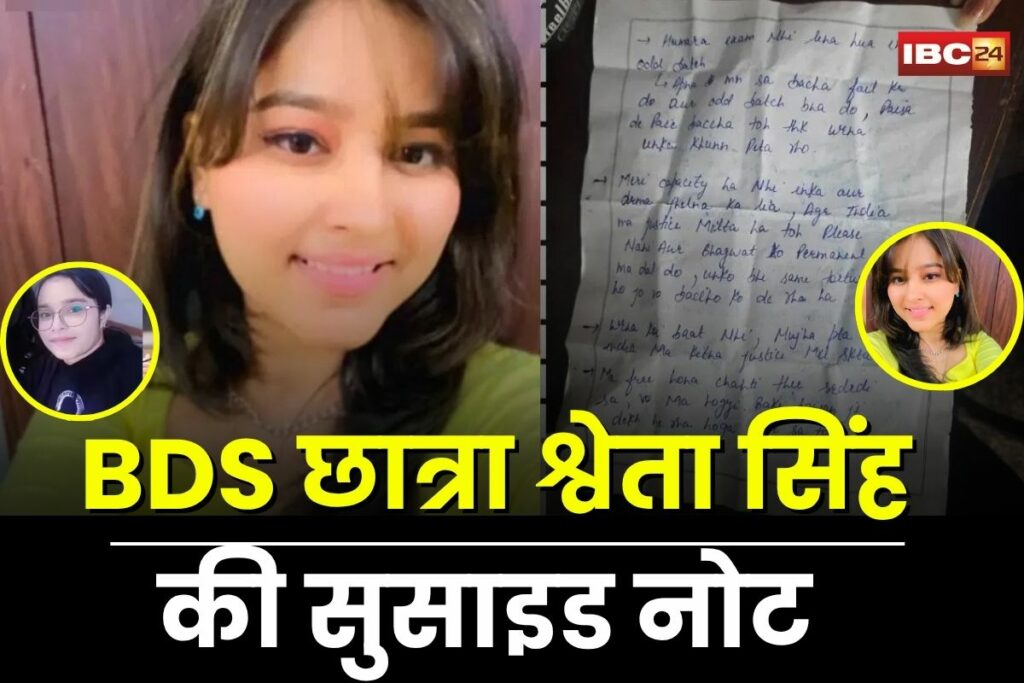 IBC24
→ Humara exam Nhi lena hua
odd batch
↳ Apne mn sa bacha fail kr
do aur odd batch bna do, Paisa
de Paie baccha toh thk wrna
unka khunn Peta rho.
→ Meri capacity ha Nhi inka aur
drma jhelna ka liya, Agr India
ma justice Milta ha toh Please
Aur Bhagwat ko Permanent
ma dal do, unko bhi same
ho jo vo baccho ko de rha ha
→ Wrna koi baat Nhi, Mujha pta
india Ma kitna justice Mil
→ Ma free hona chahti thee
sa vo Ma hogyi
BDS छात्रा श्वेता सिंह
की सुसाइड नोट